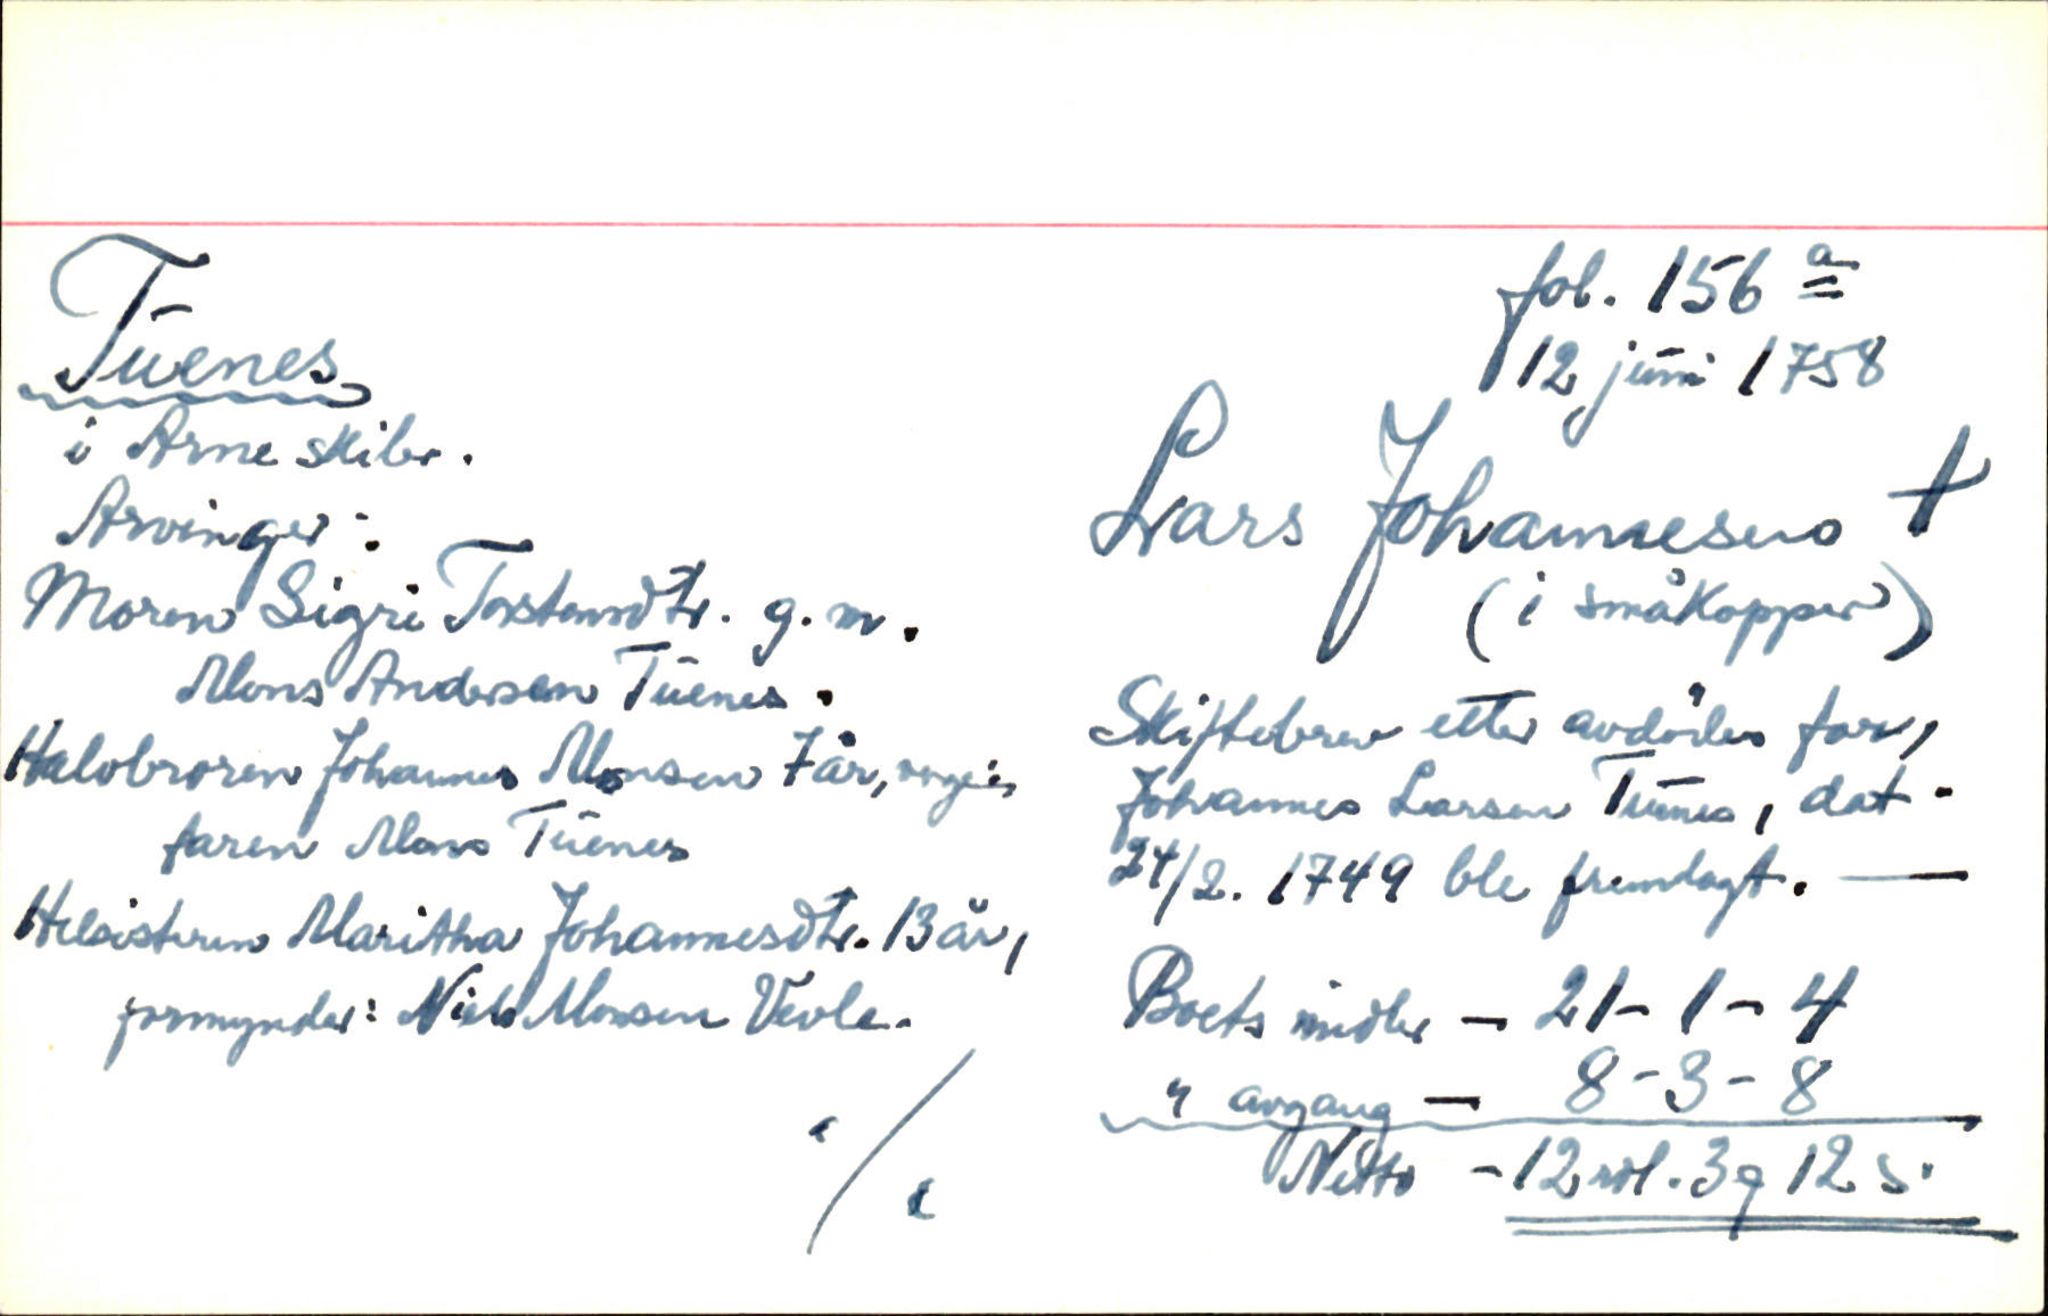 Tüenes
i Arne skibr.
Arvinger:
Moren Sigri Torstensdtr. g. m.
Mons Andersen Tüenes.
Halvbroren Johannes Monsen 7 år, verge:
faren Mons Tüenes
Helsisteren Maritha Johannesdtr. 13 år,
formynder: Niels Monsen Vevle.
fol. 156 a
12 juni 1758
Lars Johannesen †
(i småkopper)
Skiftebrev etter avdödes far,
Johannes Larsen Tüenes, dat.
24/2. 1749 ble fremlagt. —
Boets midler — 21 - 1 - 4
" avgang — 8 - 3 - 8
Netto - 12 rdl. 3 q 12 s.